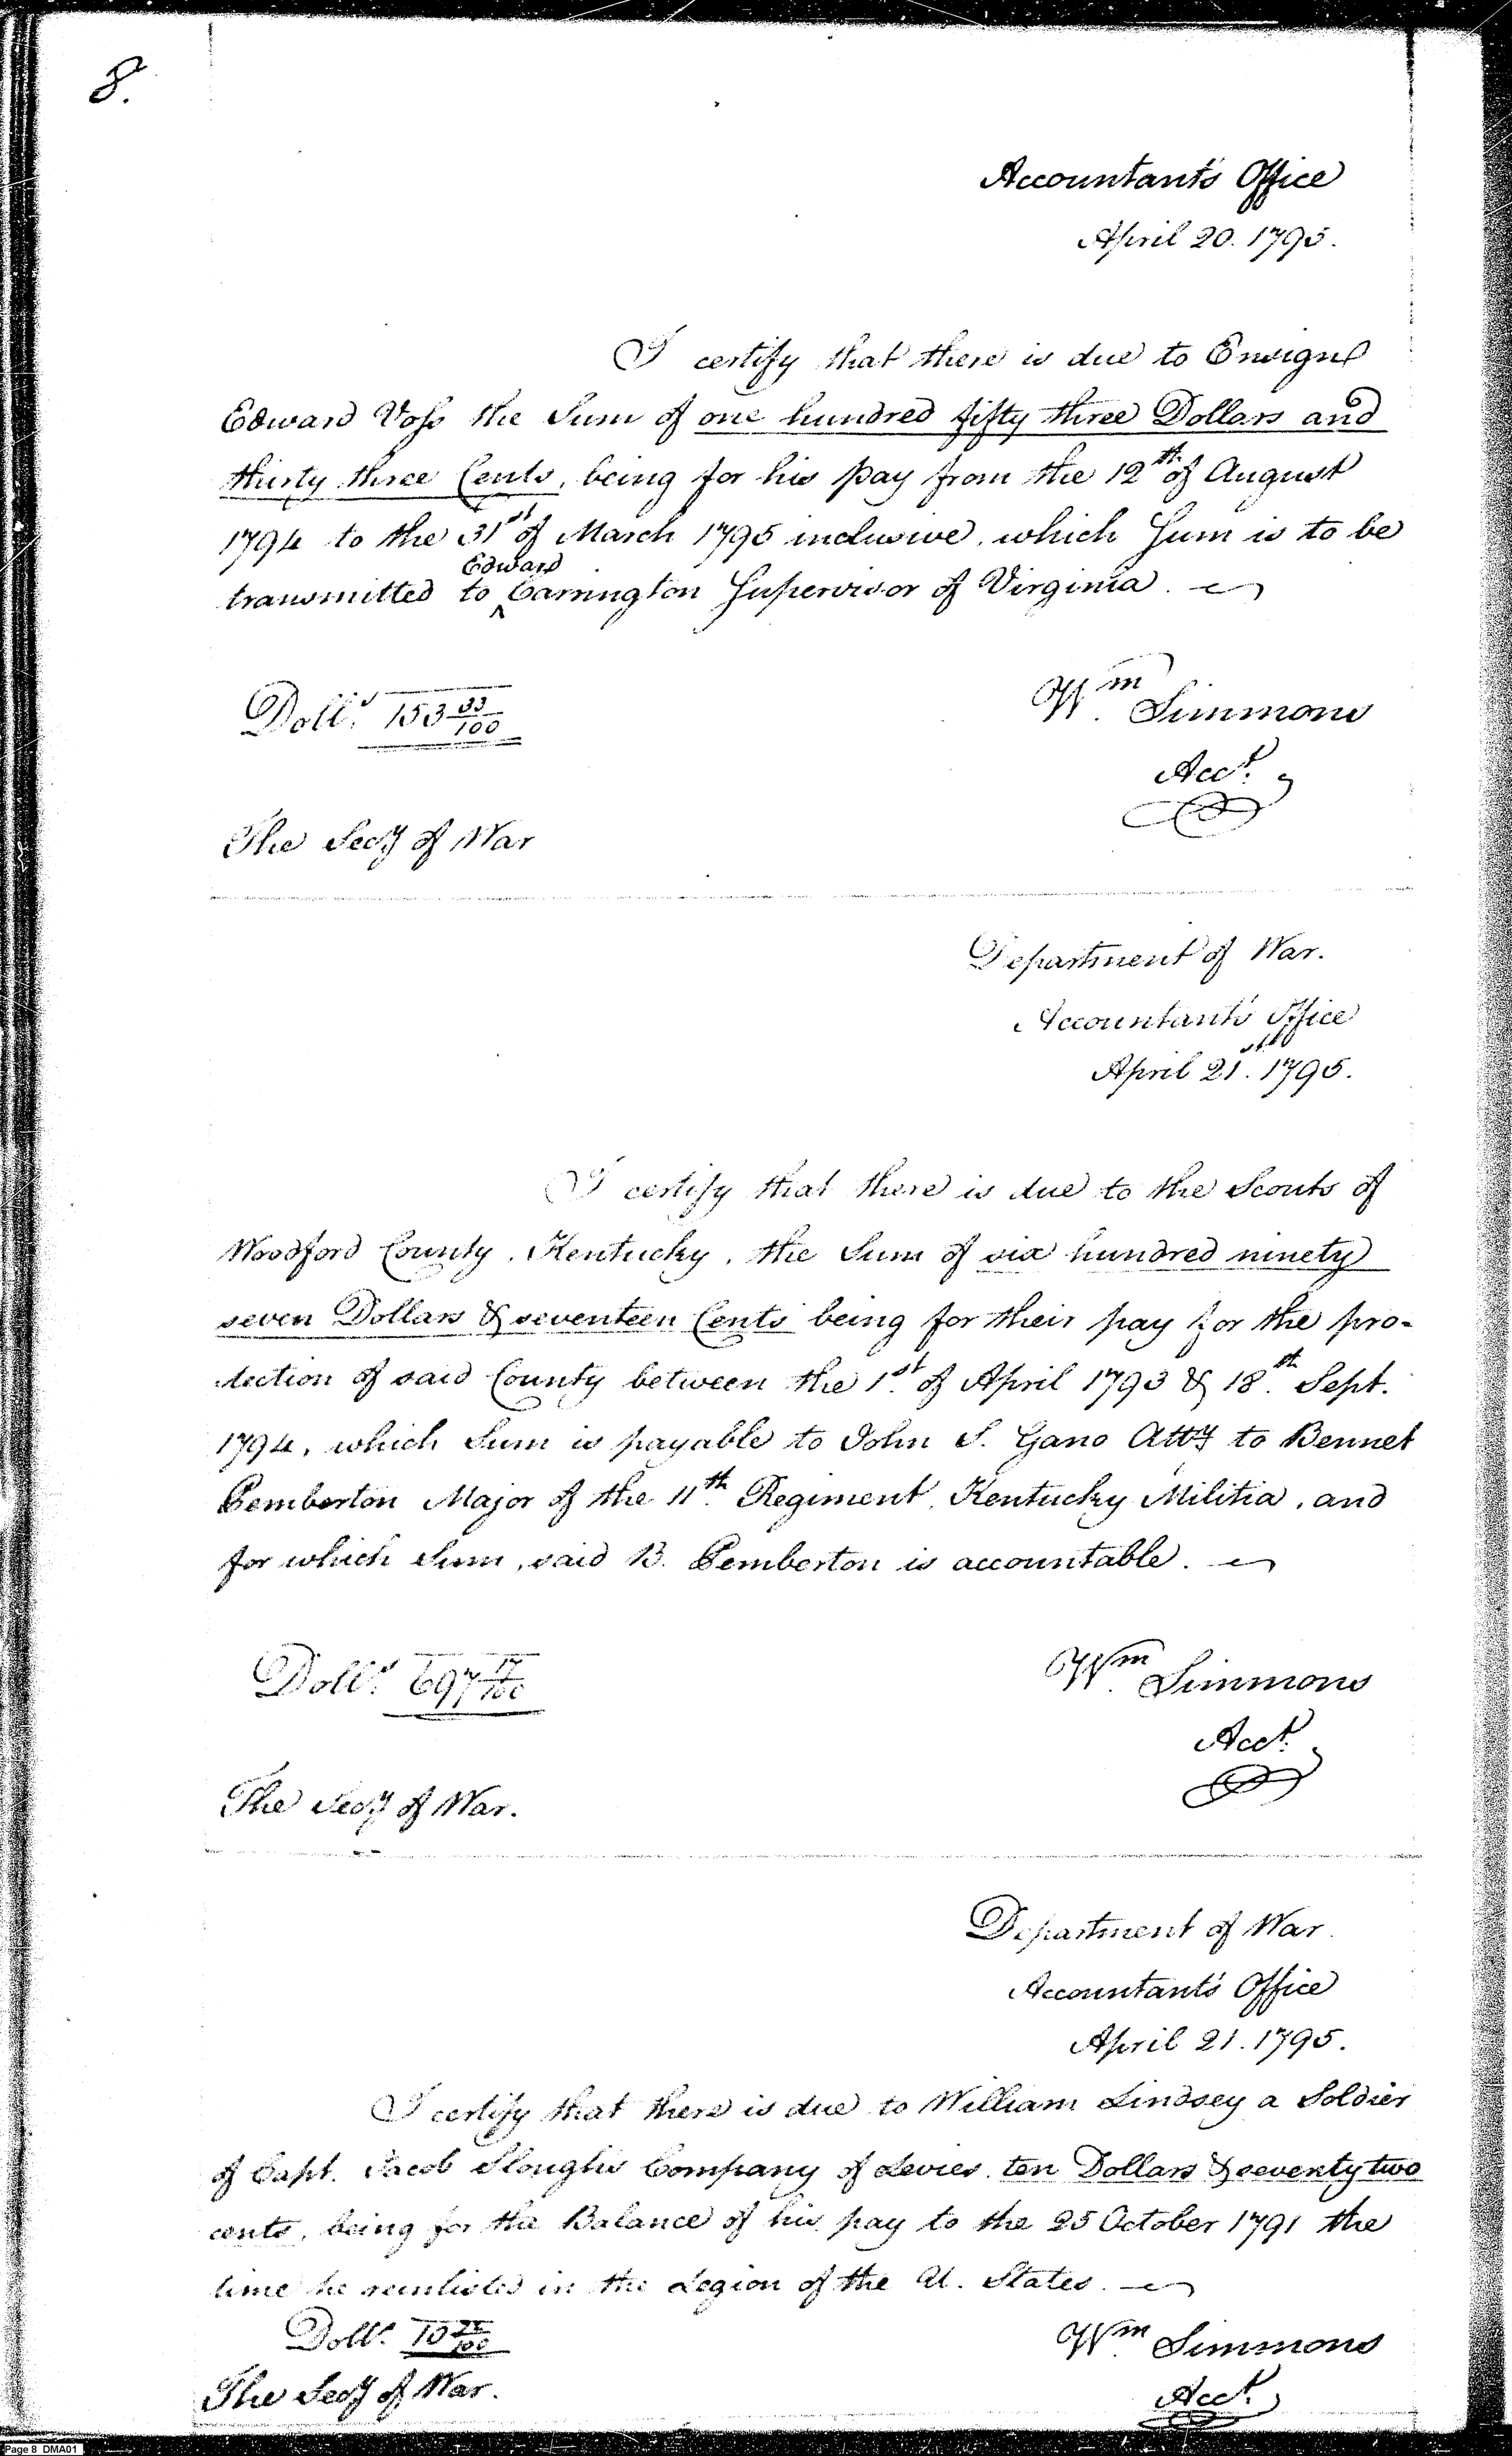 8.
Accountant's Office
April 20. 1795.
I certify that there is due to Ensign
Edward Voss the Sum of one hundred fifty three Dollars and
thirty three Cents, being for his pay from the 12th of August
1794 to the 31st of March 1795 inclusive, which Sum is to be
Edward
transmitted to ^ Carrington Supervisor of Virginia.
Dolls. 153 33/100
Wm Simmons
Acct.
The Secy of War
Department of War.
Accountant's Office
April 21st. 1795.
I certify that there is due to the Scouts of
Woodford County, Kentucky, the Sum of six hundred ninety
seven Dollars & seventeen Cents being for their pay for the pro-
tection of said County between the 1st. of April 1793 & 18th. Sept.
1794, which Sum is payable to John S. Gano Atty to Bennet
Pemberton Major of the 11th. Regiment, Kentucky Militia, and
for which Sum, said B. Pemberton is accountable.
Dolls. 697 17/100
Wm. Simmons
Acct.
The Secy of War.
Department of War.
Accountant's Office
April 21. 1795.
I certify that there is due to William Lindsey a Soldier
of Capt. Jacob Slough's Company of Levies, ten Dollars & seventy two
cents, being for the Balance of his pay to the 25 October 1791 the
time he reinlisted in the Legion of the U. States.
Dolls. 10 72/100
Wm. Simmons
Acct.
The Secy of War.
Page 8 DMA01